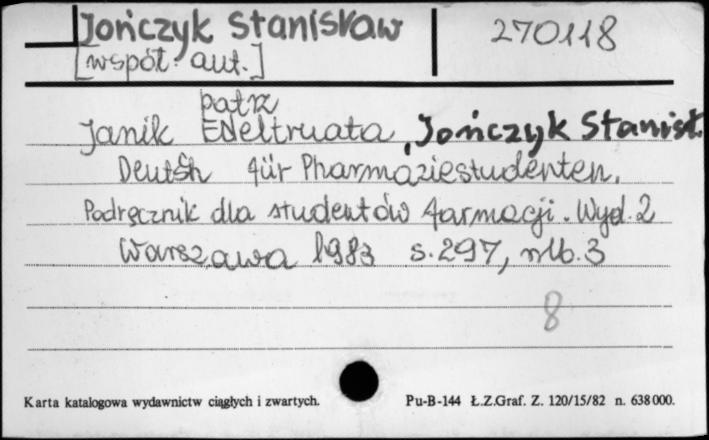 Jończyk Stanisław
270118
[współ. aut.]
patrz
Janik Edeltruata, Jończyk Stanisł.
Deutsch für Pharmaziestudenten.
Podręcznik dla studentów farmacji. Wyd. 2
Warszawa 1983 s. 297, nlb. 3
8
Karta katalogowa wydawnictw ciągłych i zwartych.
Pu-B-144 Ł.Z.Graf. Z. 120/15/82 n. 638 000.